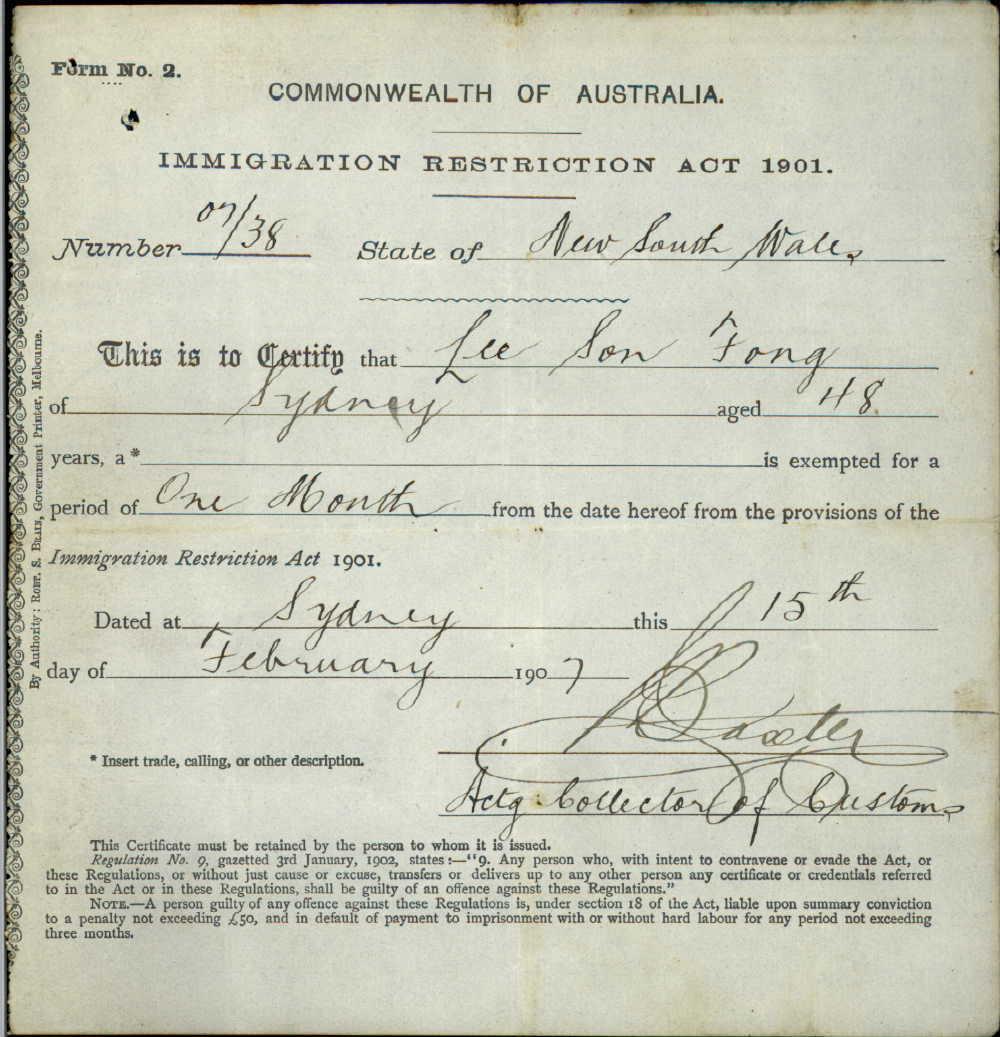 Form No. 2.
COMMONWEALTH OF AUSTRALIA.
IMMIGRATION RESTRICTION ACT 1901.
Number 07/38 State of New South Wales
This is to Certify that Lee Son Fong
of Sydney aged 48
years, a* is exempted for a
period of One Month from the date hereof from the provisions of the
Immigration Restriction Act 1901.
Dated at Sydney this 15th
day of February 1907
Baxter
* Insert trade, calling, or other description.
Actg. Collector of Customs
This Certificate must be retained by the person to whom it is issued.
Regulation No. 9, gazetted 3rd January, 1902, states:—"9. Any person who, with intent to contravene or evade the Act, or
these Regulations, or without just cause or excuse, transfers or delivers up to any other person any certificate or credentials referred
to in the Act or in these Regulations, shall be guilty of an offence against these Regulations."
NOTE.—A person guilty of any offence against these Regulations is, under section 18 of the Act, liable upon summary conviction
to a penalty not exceeding £50, and in default of payment to imprisonment with or without hard labour for any period not exceeding
three months.
By Authority: ROBT. S. BRAIN, Government Printer, Melbourne.